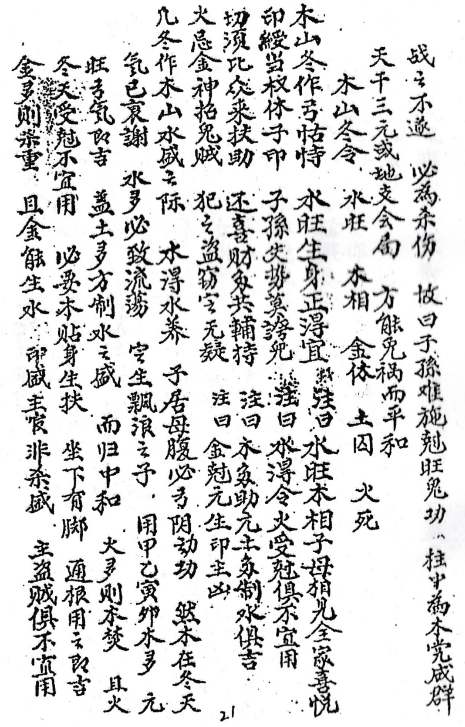 战之不遂　必為杀伤　故曰子孫难施尅旺鬼功　柱中為木党成群
天干三元或地支会局　方能免禍而平和
木山冬令　水旺　木相　金休　土囚　火死
木山冬作弓怙恃　水旺生身正得宜　註曰　水旺木相子母相見全家喜悦
印綬当权休子印　子孫失势莫　註曰　水得令火受尅俱不宜用
切須比众来扶助　还喜财多共輔持　註曰　木多助元土多制水俱吉
火忌金神招鬼賊　犯之盗窃定无疑　註曰　金尅元生印主凶
凡冬作木山水盛之际　水得水养　子居母腹必弓閃动功　然木在冬天
氣已衰謝　水多必致流荡　定生飘浪之子　用甲乙寅卯木多　元
旺弓气即吉　盖土多方制水之盛　而归中和　火多則木焚　且火
冬天受尅不宜用　必要木貼身生扶　坐下有脚　通根用之即吉
金多則杀重　且金能生水　印盛主　非杀盛　主盗賊俱不宜用
21